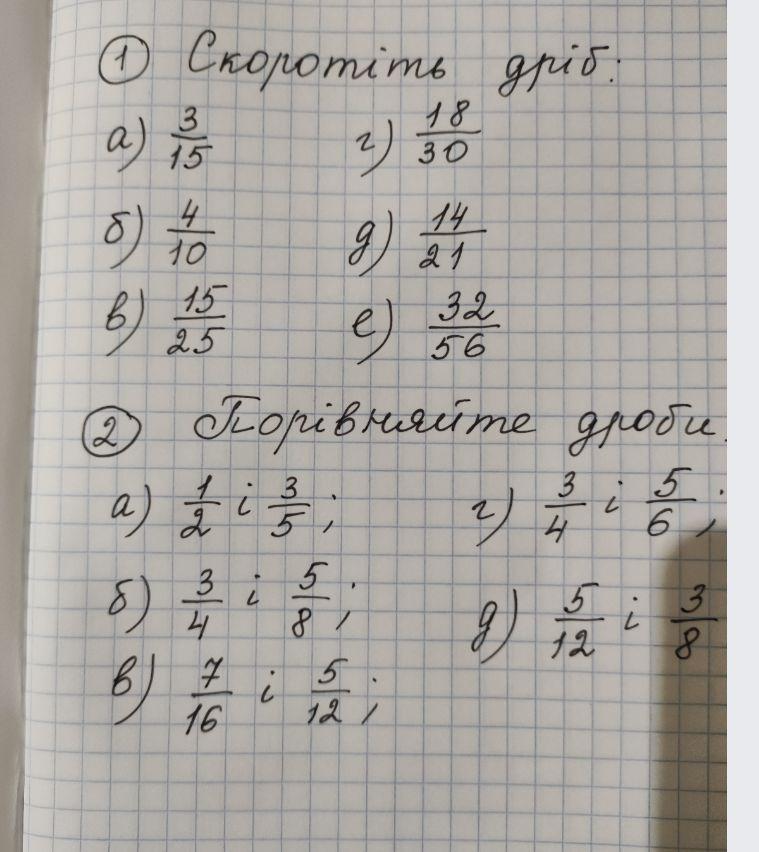 1 Скоротіть дріб:
а) 3/15 г) 18/30
б) 4/10 д) 14/21
в) 15/25 е) 32/56
2 Порівняйте дроби.
а) 1/2 і 3/5; г) 3/4 і 5/6;
б) 3/4 і 5/8; д) 5/12 і 3/8
в) 7/16 і 5/12;